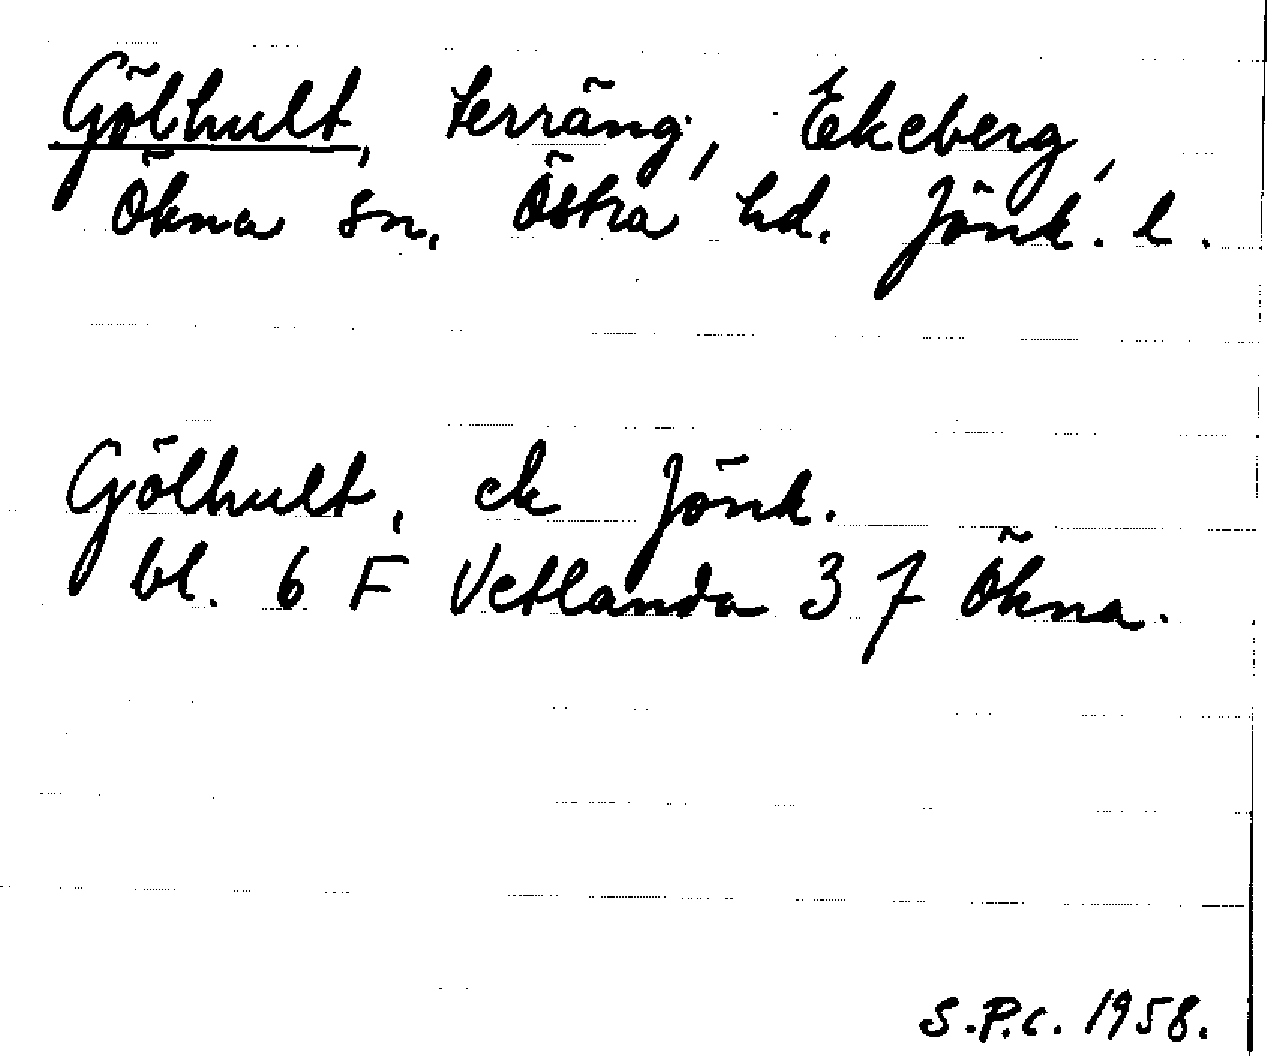 Gölhult, terräng, Ekeberg,
Ökna sn. Östra hd. Jönk. l.
Gölhult, ek Jönk.
bl. 6 F Vetlanda 3 f Ökna.
S.P.C. 1958.